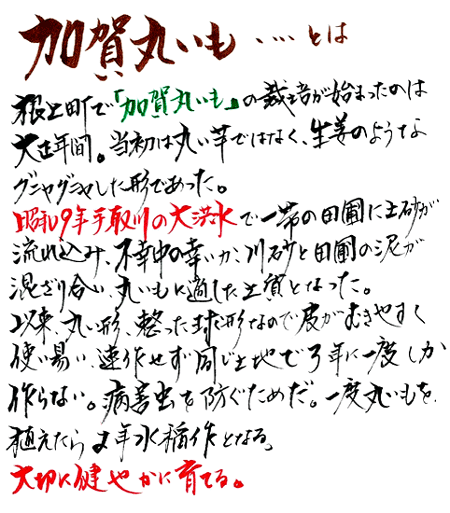 加賀丸いも ..... とは
根上町で「加賀丸いも」の栽培が始まったのは
大正年間。当初は丸い芋ではなく、生姜のような
グニャグニャした形であった。
昭和9年手取川の大洪水で一帯の田圃に土砂が
流れ込み、不幸中の幸いか、川砂と田圃の泥が
混ざり合い、丸いもに適した土質となった。
以来、丸い形、整った球形なので皮がむきやすく
使い易い、連作せず同じ土地で3年に一度しか
作らない。病害虫を防ぐためだ。一度丸いもを
植えたら2年水稲作となる。
大切に健やかに育てる。